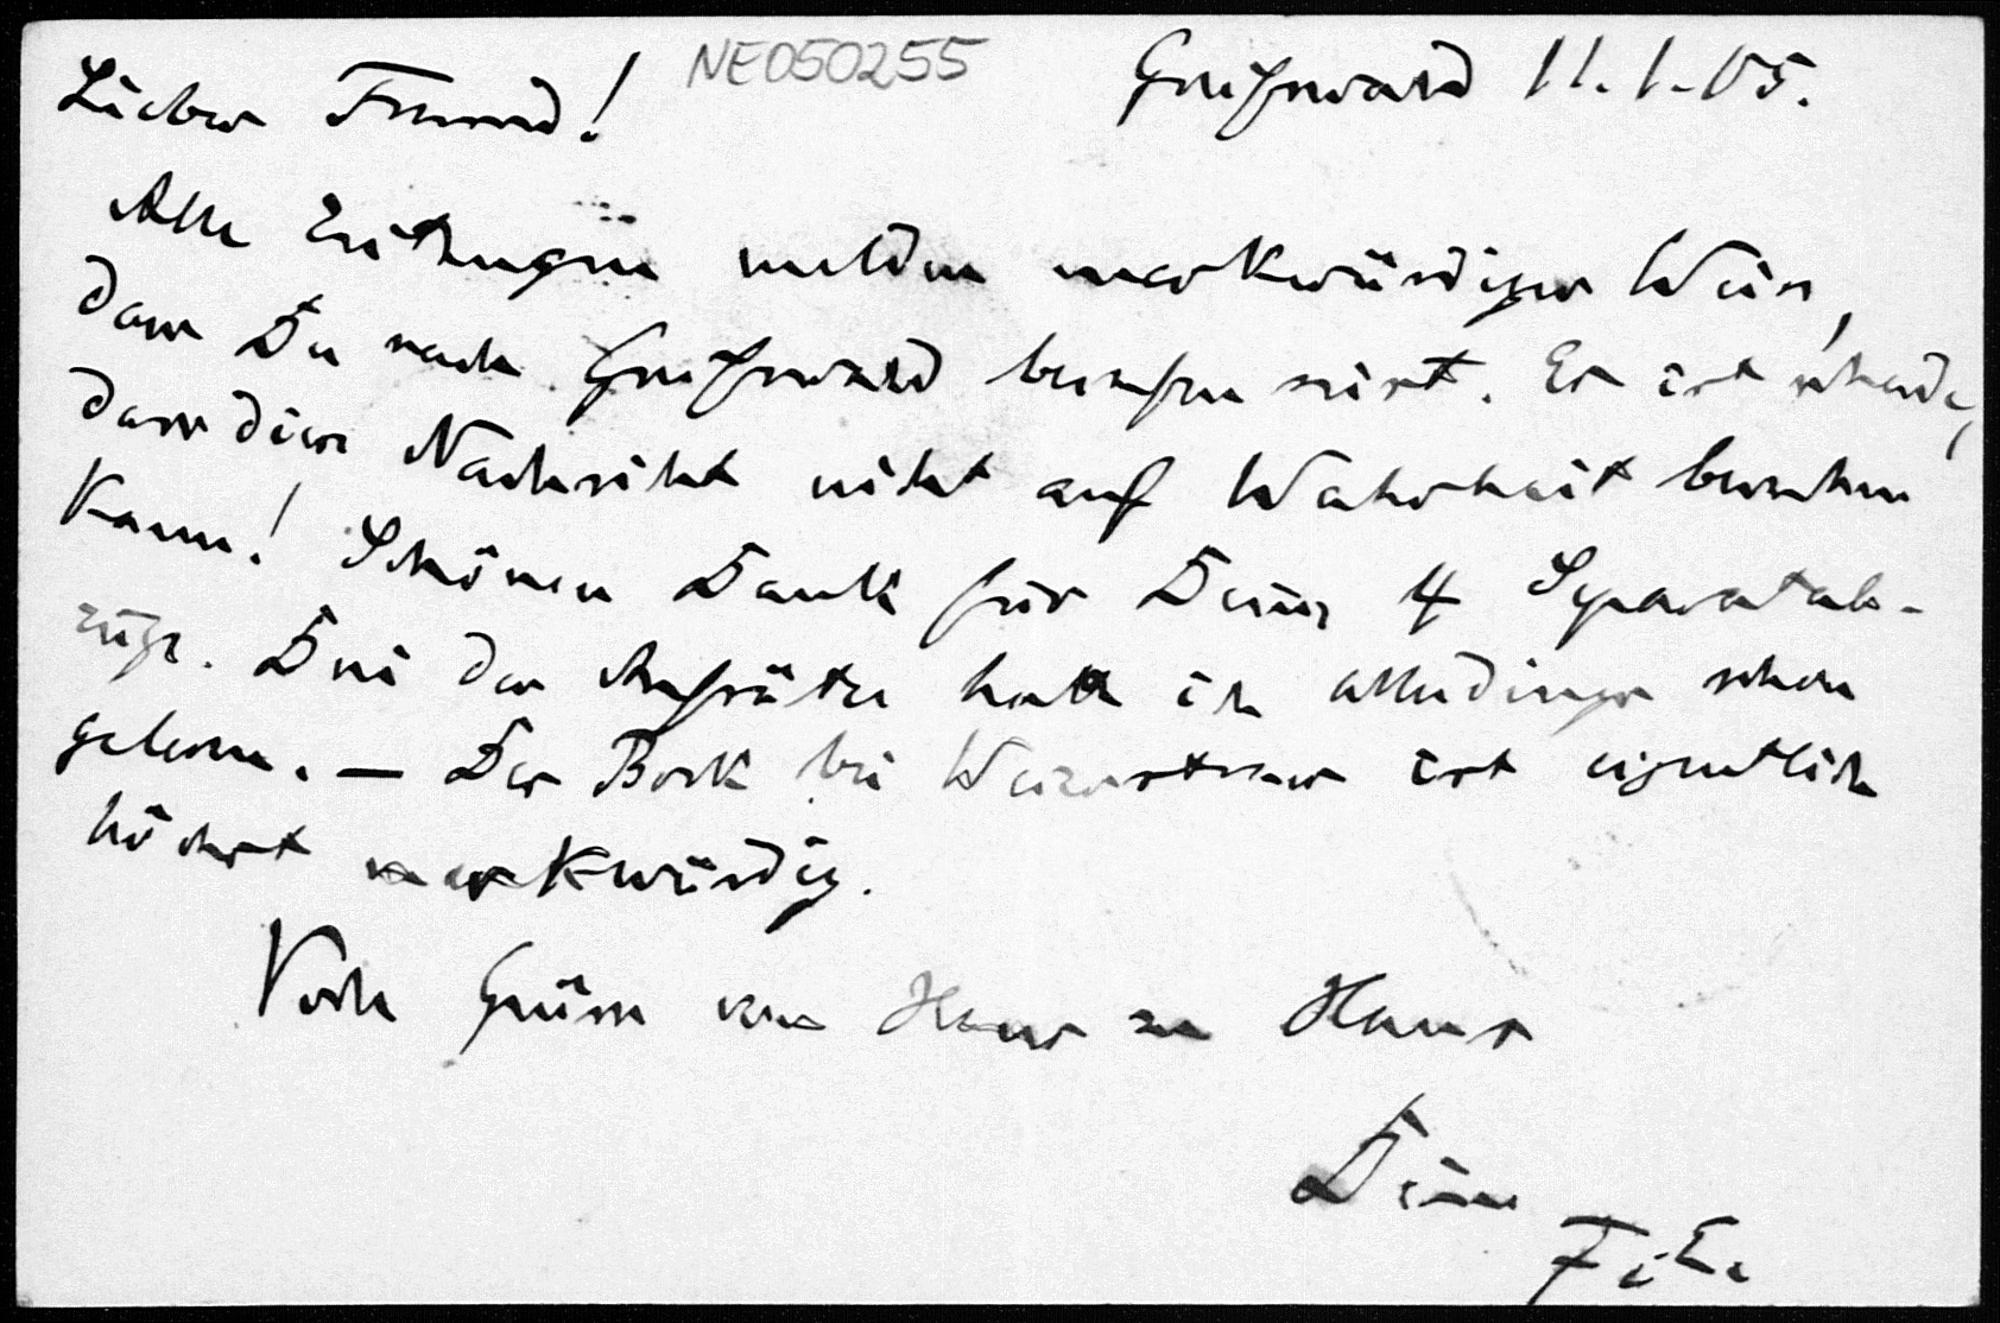 NE050255
Greifswald 11.1.05.
Lieber Freund!
Alle Zeitungen melden merkwürdiger Weise,
dass Du nach Greifswald berufen seist. Es ist schade,
dass diese Nachricht nicht auf Wahrheit beruhen
kann! Schönen Dank für Deine 4 Separatab-
züge. Drei der Aufsätze hatte ich allerdings schon
gelesen. — Der Bock bei ist eigentlich
höchst merkwürdig.
Viele Grüsse von Haus zu Haus
Dein
F. E.